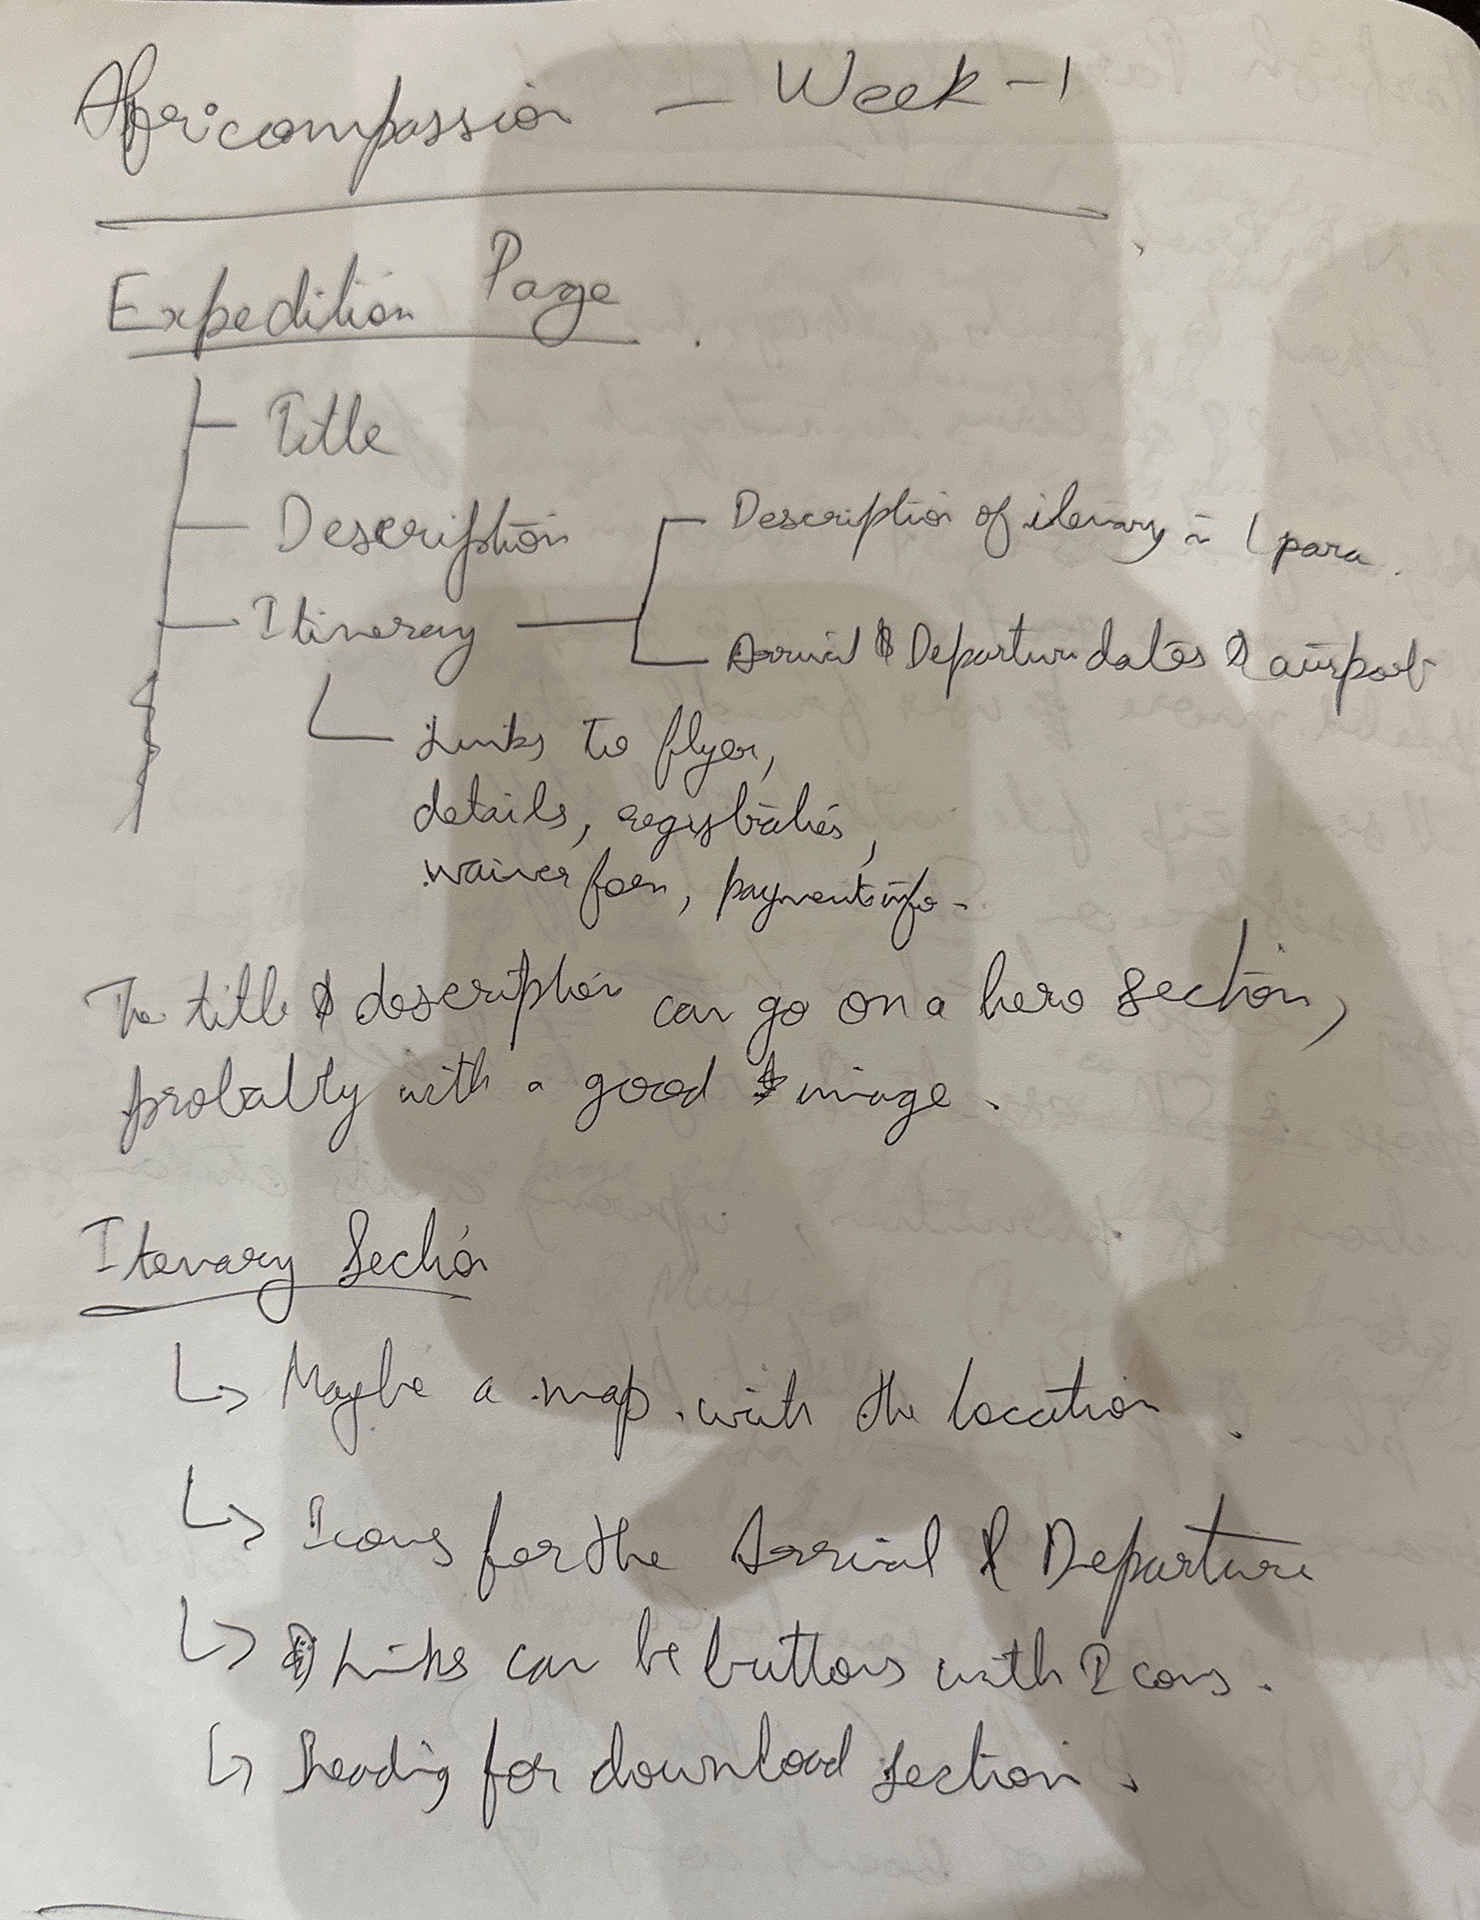 Africompassion — Week - 1
Expedition Page
Title
Description
Itinerary
Description of itenary in 1 para.
Arrival & Departure dates & airport
Links to flyer,
details, registration,
waiver form, payment info-
The title & description can go on a hero section,
probably with a good image.
Itenary Section
↳ Maybe a map with the location.
↳ Icons for the Arrival & Departure
↳ Links can be buttons with Icons.
↳ Heading for download section.